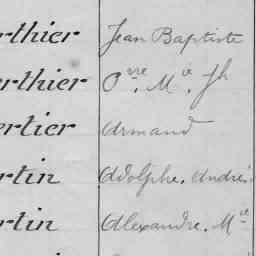 rthier Jean Baptiste
rthier Pre. Mie. Jh
ertier Armand
rtin Adolphe. André
rtin Alexandre. Mie